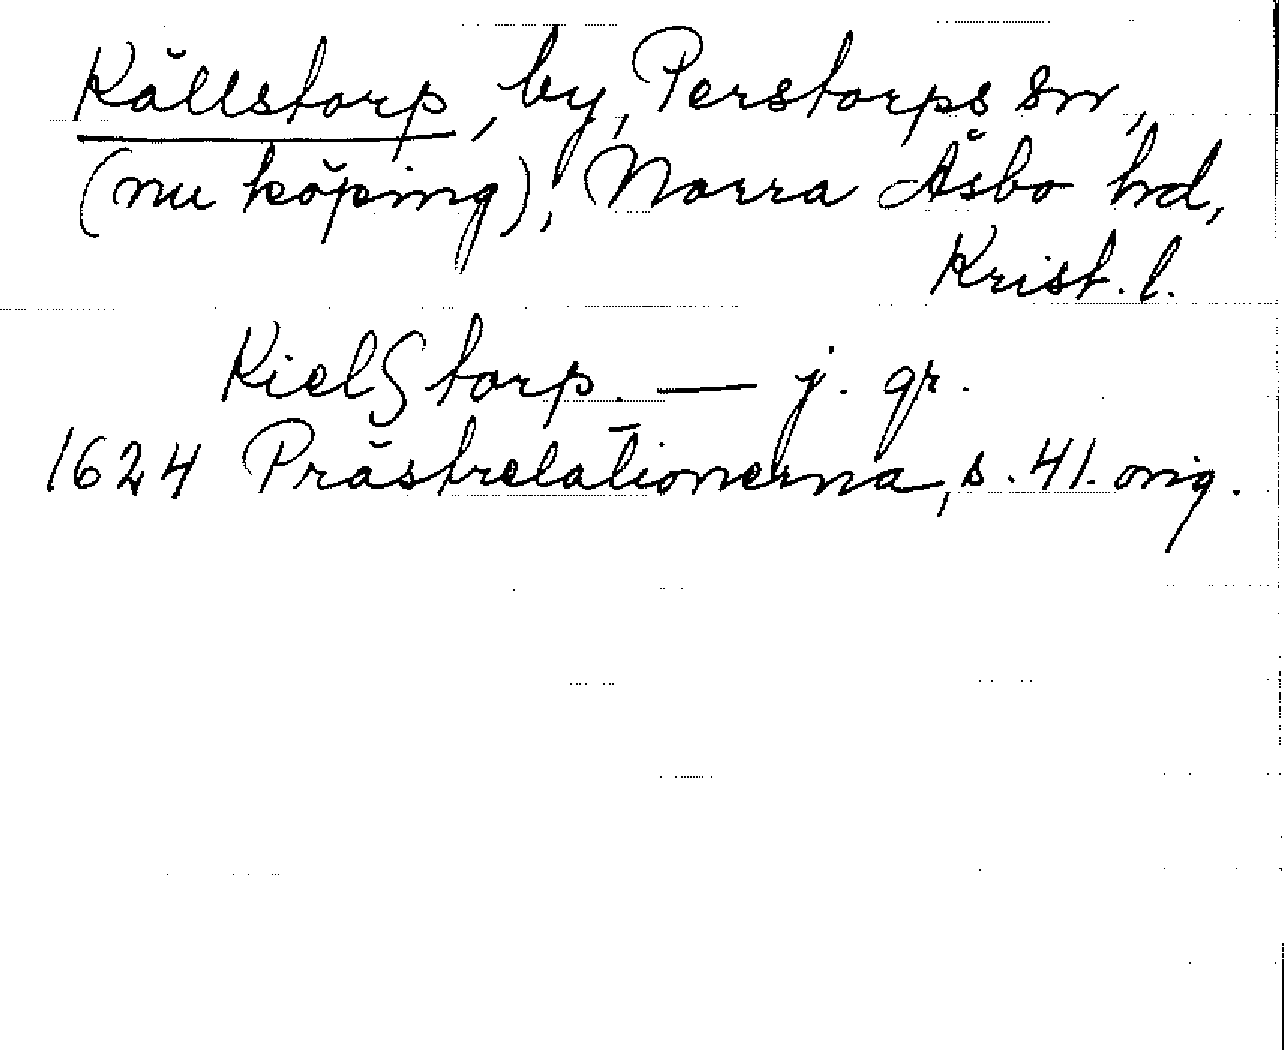 Källstorp, by, Perstorps sn,
(nu köping), Norra Åsbo hd,
Krist. l.
KielStorp. — j. gr.
1624 Prästrelationerna, s. 41. orig.